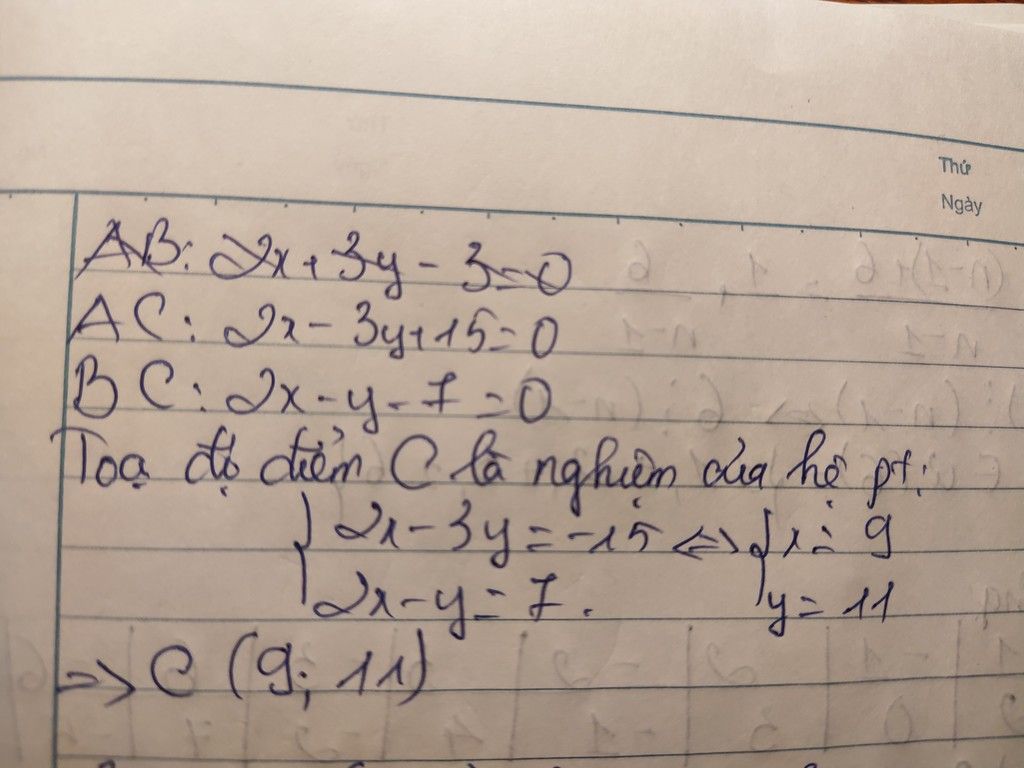 Thứ
Ngày
AB: 2x+3y-3=0
AC: 2x-3y+15=0
BC: 2x-y-7=0
Toạ độ điểm C là nghiệm của hệ pt:
{ 2x-3y=-15 <=> { x=9
2x-y=7. y=11
=> C (9; 11)